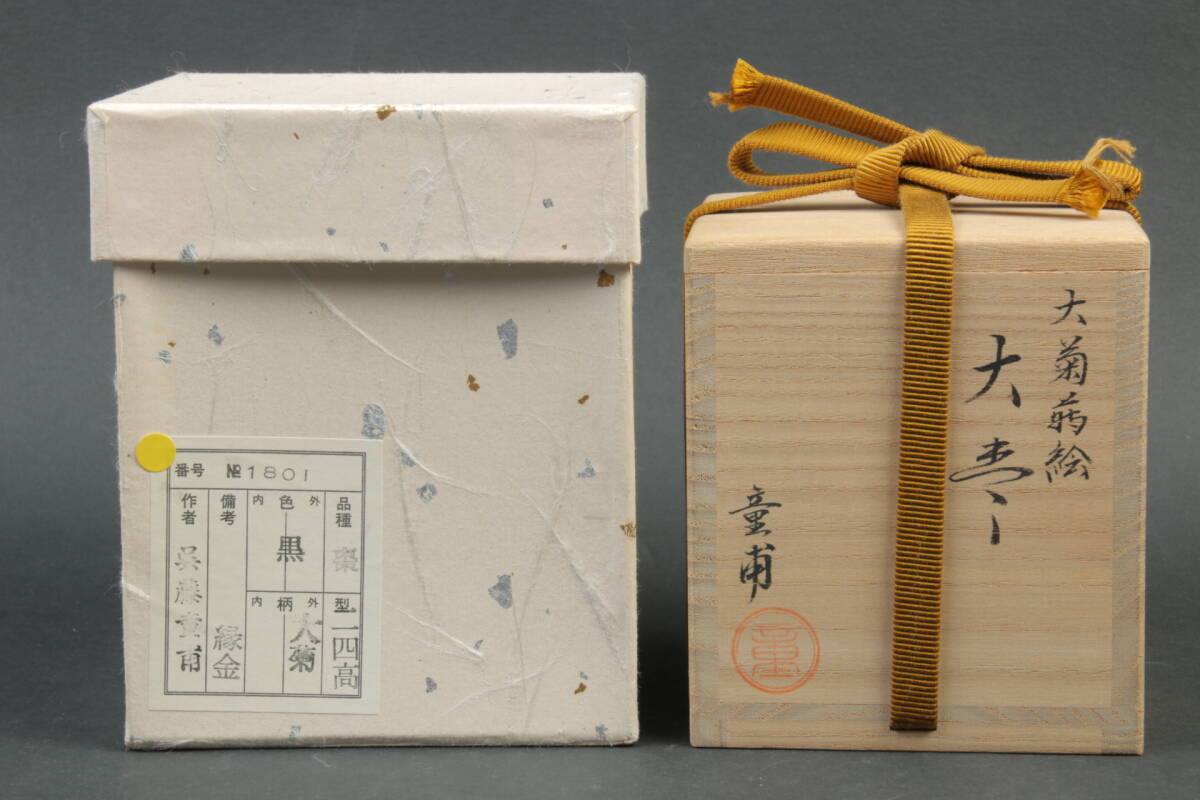 番号 №1801
品種 棗
型 二四高
外 色 内
黒
外 柄 内
大菊
備考 縁金
作者 呉藤童甫
大菊蒔絵
大棗
童甫
童